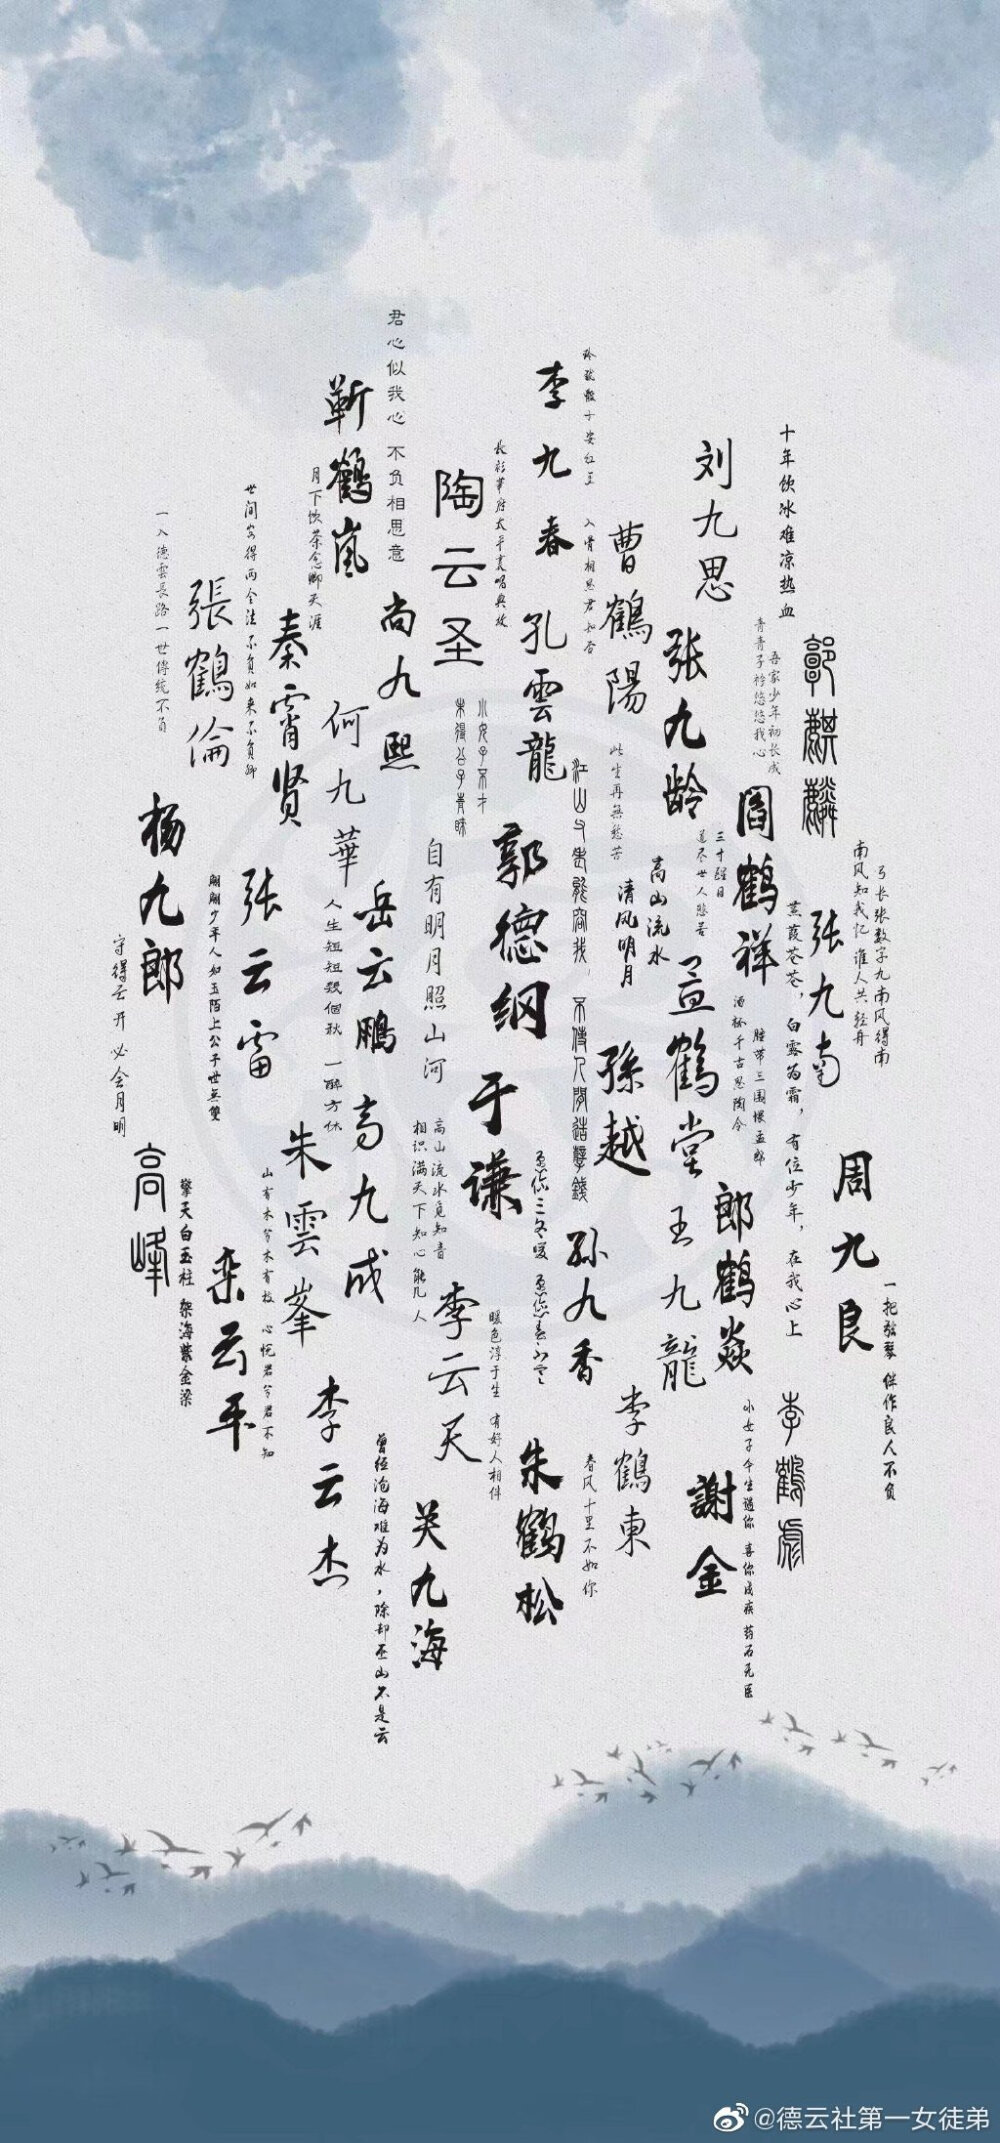 一把弦琴 伴作良人不负
周九良
弓长张数字九南风得南
南风知我忆 谁人共轻舟
张九南
郭麒麟
蒹葭苍苍，白露为霜，有位少年，在我心上
李鹤彪
十年饮冰难凉热血
吾家少年初长成
青青子衿悠悠我心
閻鹤祥
腰带三围恨孟郎
酒杯千古思陶令
郎鹤焱
小女子今生遇你 喜你成疾 药石无医
刘九思
三十醒日
道尽世人愁苦
謝金
张九龄
孟鹤堂
王九龍
高山流水
清风明月
曹鶴陽
此生再無愁苦
孫越
李鶴東
玲珑骰子安红豆 入骨相思君知否
江山父老能容我，不使人間造孽錢
孙九香
春风十里不如你
李九春
孔雲龍
朱鹤松
長衫華府太平裏唱典故
郭德纲
于谦
陶云圣
小女子不才
未得公子青睐
暖色淳于生 有好人相伴
李云天
君心似我心 不负相思意
尚九熙
自有明月照山河
高山流水觅知音
相识满天下知心能几人
关九海
靳鹤嵐
月下饮茶念卿天涯
何九華
岳云鹏
高九成
人生短短幾個秋 一醉方休
曾经沧海难为水，除却巫山不是云
秦霄贤
朱雲峯
李云杰
世间安得两全法 不负如来不负卿
张云雷
山有木兮木有枝 心悦君兮君不知
張鶴倫
翩翩少年人如玉陌上公子世無雙
栾云平
一入德雲長路一世傳統不負
杨九郎
擎天白玉柱 架海紫金梁
高峰
守得云开 必会月明
@德云社第一女徒弟